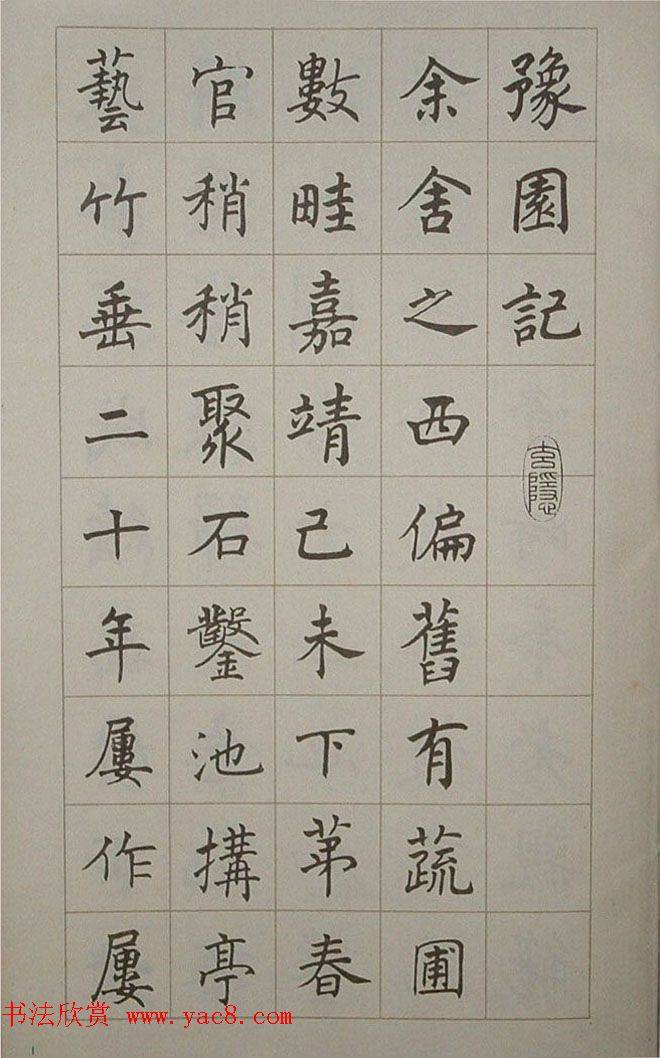 豫園記
余舍之西偏舊有蔬圃
數畦嘉靖己未下苐春
官稍稍聚石鑿池搆亭
藝竹垂二十年屢作屢
書法欣赏 www.yac8.com